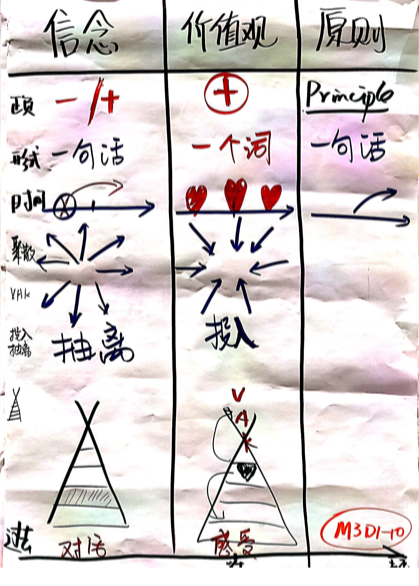 信念 价值观 原则
- /+ + Principle
形式 一句话 一个词 一句话
时间
聚散
VAK
投入
抽离 抽离 投入
V
A
K
对话 感受
M3D1-10